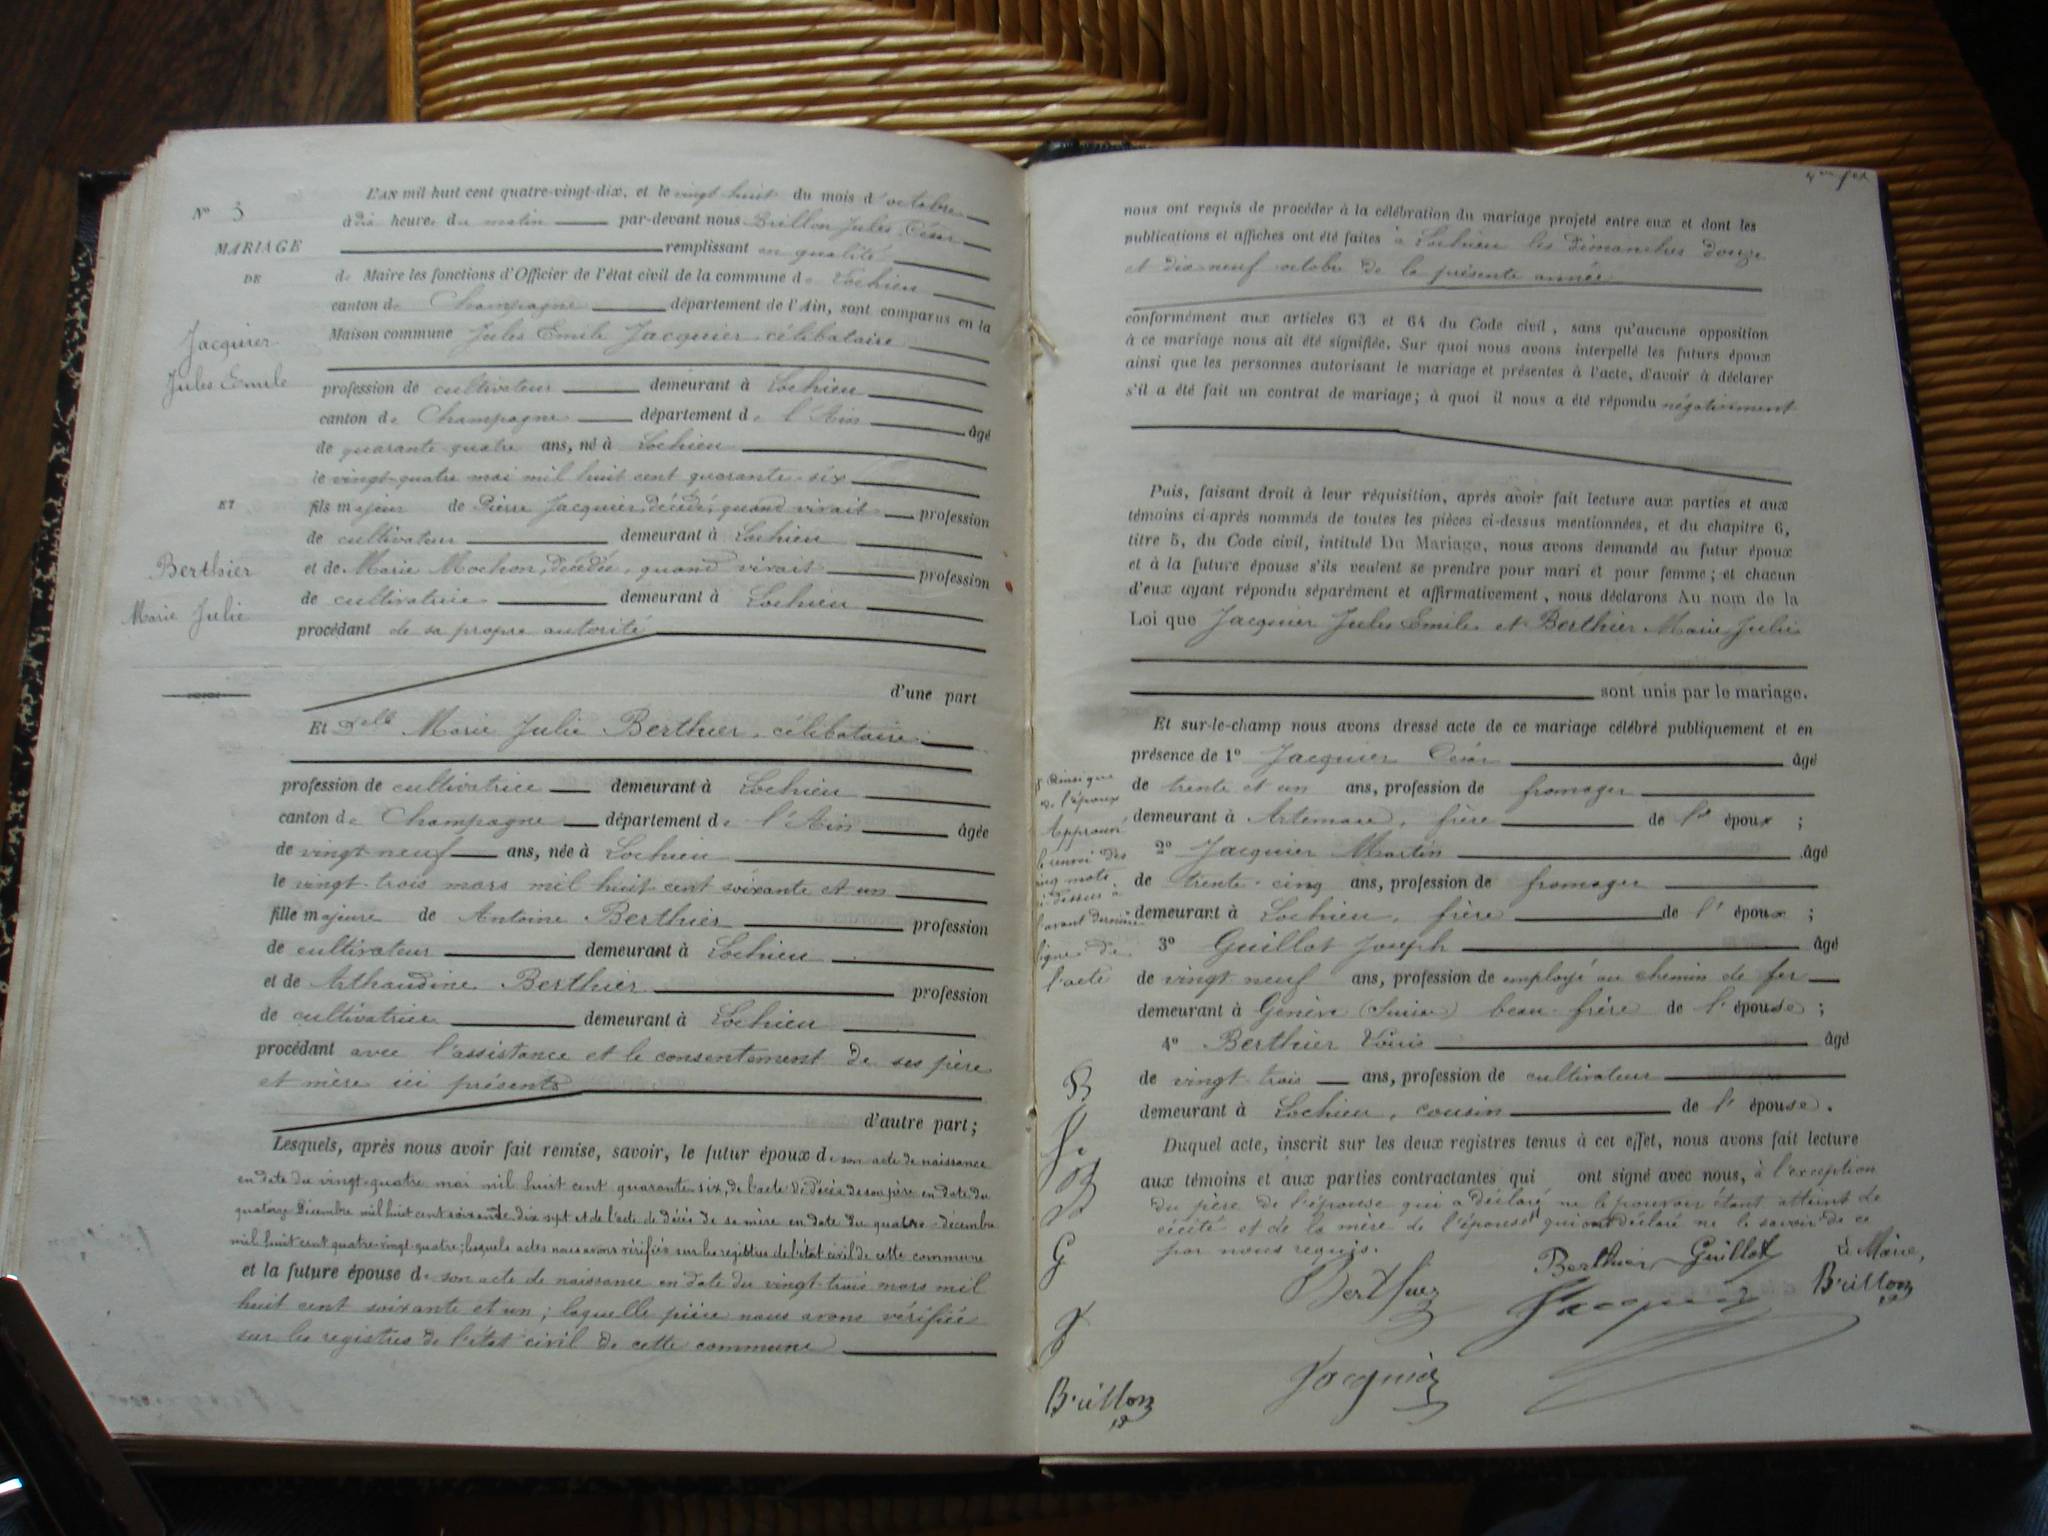 N° 3
MARIAGE
DE
Jacquier
Jules Emile
ET
Berthier
Marie Julie
L'AN mil huit cent quatre-vingt-dix, et le vingt huit du mois d'octobre
à dix heures du matin par-devant nous Brillon Jules César
remplissant en qualité
de Maire les fonctions d'Officier de l'état civil de la commune de Lochieu
canton de Champagne département de l'Ain, sont comparus en la
Maison commune Jules Emile Jacquier célibataire
profession de cultivateur demeurant à Lochieu
canton de Champagne département de l'Ain âgé
de quarante quatre ans, né à Lochieu
le vingt-quatre mai mil huit cent quarante-six
fils majeur de Pierre Jacquier, décédé, quand vivait profession
de cultivateur demeurant à Lochieu
et de Marie Mochon, décédée, quand vivait profession
de cultivatrice demeurant à Lochieu
procédant de sa propre autorité
d'une part
Et Delle Marie Julie Berthier, célibataire
profession de cultivatrice demeurant à Lochieu
canton de Champagne département de l'Ain âgée
de vingt neuf ans, née à Lochieu
le vingt-trois mars mil huit cent soixante et un
fille majeure de Antoine Berthier profession
de cultivateur demeurant à Lochieu
et de Arthaudine Berthier profession
de cultivatrice demeurant à Lochieu
procédant avec l'assistance et le consentement de ses père
et mère ici présents
d'autre part;
Lesquels, après nous avoir fait remise, savoir, le futur époux de son acte de naissance
en date du vingt-quatre mai mil huit cent quarante six, de l'acte de décès de son père en date du
quatorze décembre mil huit cent soixante dix sept et de l'acte de décès de sa mère en date du quatre décembre
mil huit cent quatre-vingt-quatre; lesquels actes nous avons vérifiés sur les registres de l'état civil de cette commune
et la future épouse de son acte de naissance en date du vingt-trois mars mil
huit cent soixante et un; laquelle pièce nous avons vérifiée
sur les registres de l'état civil de cette commune
nous ont requis de procéder à la célébration du mariage projeté entre eux et dont les
publications et affiches ont été faites à Lochieu les dimanches douze
et dix-neuf octobre de la présente année
conformément aux articles 63 et 64 du Code civil, sans qu'aucune opposition
à ce mariage nous ait été signifiée. Sur quoi nous avons interpellé les futurs époux
ainsi que les personnes autorisant le mariage et présentes à l'acte, d'avoir à déclarer
s'il a été fait un contrat de mariage; à quoi il nous a été répondu négativement
Puis, faisant droit à leur réquisition, après avoir fait lecture aux parties et aux
témoins ci-après nommés de toutes les pièces ci-dessus mentionnées, et du chapitre 6,
titre 5, du Code civil, intitulé Du Mariage, nous avons demandé au futur époux
et à la future épouse s'ils veulent se prendre pour mari et pour femme; et chacun
d'eux ayant répondu séparément et affirmativement, nous déclarons Au nom de la
Loi que Jacquier Jules Emile et Berthier Marie Julie
sont unis par le mariage.
Et sur-le-champ nous avons dressé acte de ce mariage célébré publiquement et en
présence de 1° Jacquier César âgé
de trente et un ans, profession de fromager
demeurant à Artemare, frère de l'époux ;
2° Jacquier Martin âgé
de trente-cinq ans, profession de fromager
demeurant à Lochieu, frère de l'époux ;
3° Guillot Joseph âgé
de vingt neuf ans, profession de employé au chemin de fer
demeurant à Genève (Suisse) beau-frère de l'épouse ;
4° Berthier Louis âgé
de vingt trois ans, profession de cultivateur
demeurant à Lochieu, cousin de l'épouse.
Duquel acte, inscrit sur les deux registres tenus à cet effet, nous avons fait lecture
aux témoins et aux parties contractantes qui ont signé avec nous, à l'exception
du père de l'épouse qui a déclaré ne le pouvoir étant atteint de
cécité et de la mère de l'épouse qui ont déclaré ne le savoir de ce
par nous requis.
ainsi que
de l'époux
Approuvé
le renvoi des
cinq mots
ci-dessus à
l'avant dernière
ligne de
l'acte
B
J.
B
G
J
Brillon
Berthier
Berthier
Guillot
Le Maire,
Brillon
Jacquier
Jacquier